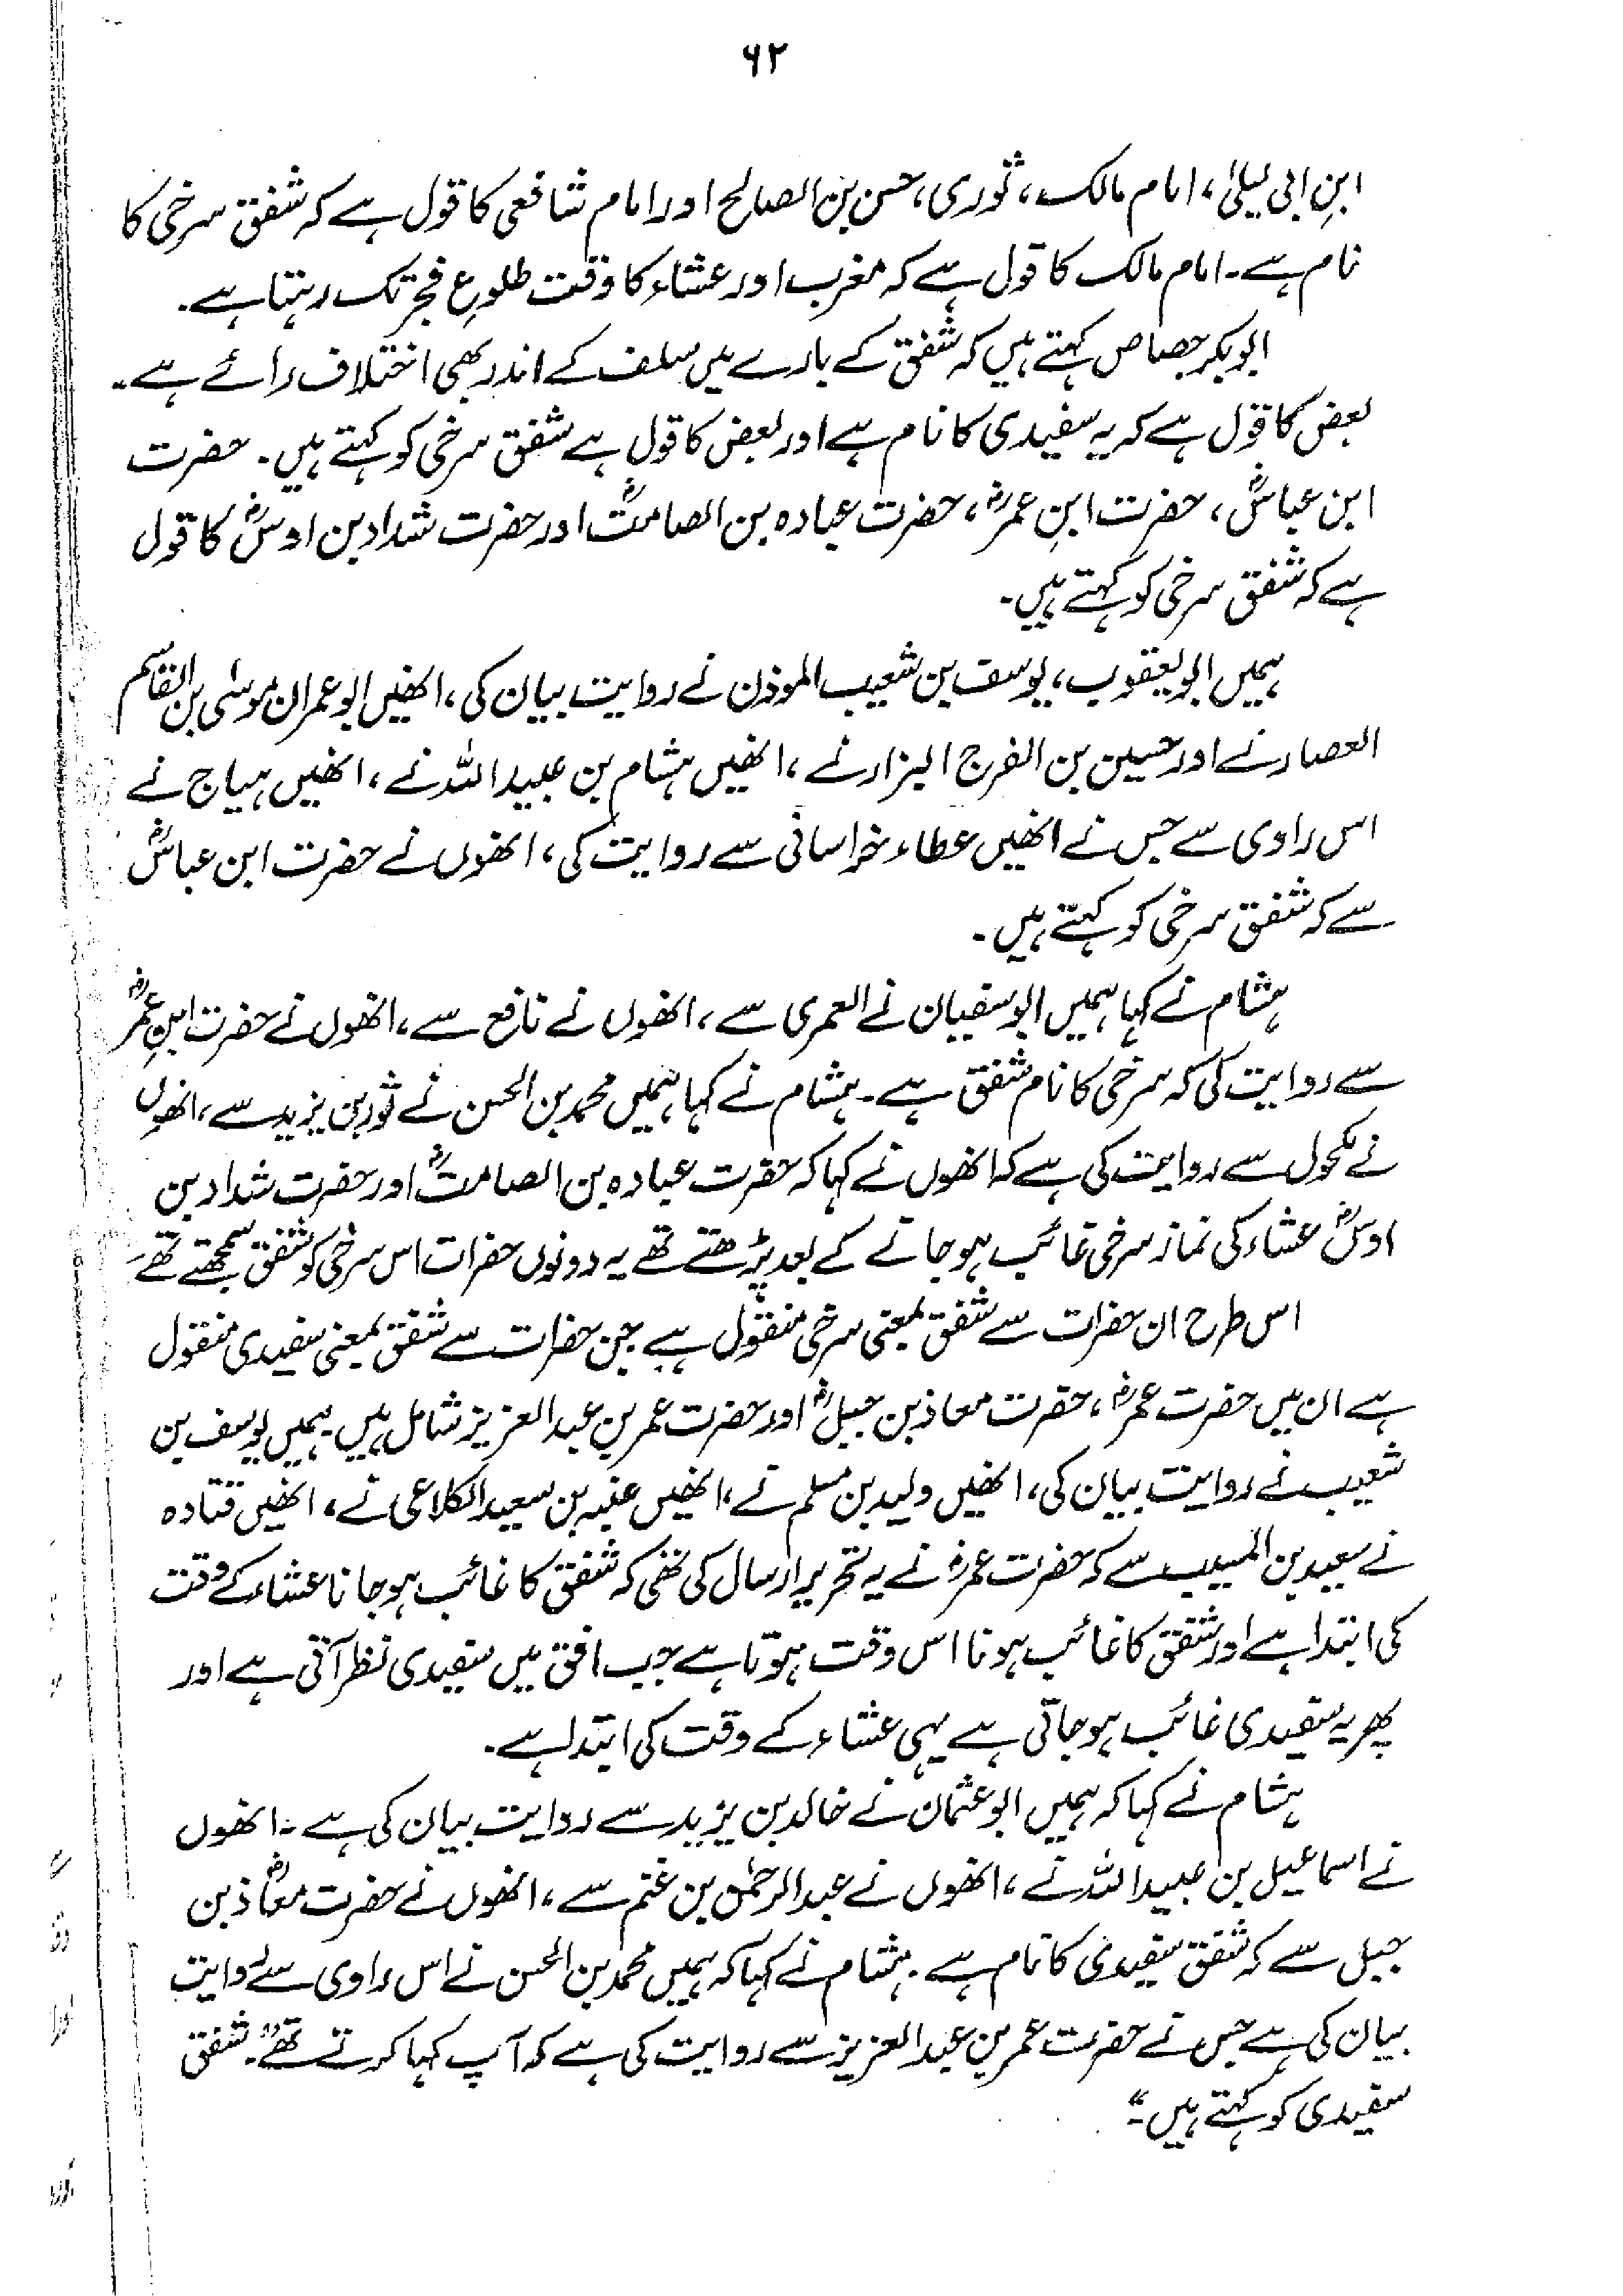 ۶۲
ابنِ ابی لیلیٰ، امام مالک، ثوری، حسن بن الصالح اور امام شافعی کا قول ہے کہ شفق سرخی کا
نام ہے۔ امام مالک کا قول ہے کہ مغرب اور عشاء کا وقت طلوعِ فجر تک رہتا ہے۔
ابوبکر جصاص کہتے ہیں کہ شفق کے بارے میں سلف کے اندر بھی اختلاف رائے ہے۔
بعض کا قول ہے کہ یہ سفیدی کا نام ہے اور بعض کا قول ہے شفق سرخی کو کہتے ہیں۔ حضرت
ابن عباسؓ، حضرت ابنِ عمرؓ، حضرت عبادہ بن الصامتؓ اور حضرت شداد بن اوسؓ کا قول
ہے کہ شفق سرخی کو کہتے ہیں۔
ہمیں ابو یعقوب، یوسف بن شعیب الموذن نے روایت بیان کی، انھیں ابو عمران موسٰی بن القاسم
العصار نے اور حسین بن الفرج البزار نے، انھیں ہشام بن عبیداللہ نے، انھیں ہیاج نے
اس راوی سے جس نے انھیں عطاء خراسانی سے روایت کی، انھوں نے حضرت ابن عباسؓ
سے کہ شفق سرخی کو کہتے ہیں۔
ہشام نے کہا ہمیں ابو سفیان نے العمری سے، انھوں نے نافع سے، انھوں نے حضرت ابنِ عمرؓ
سے روایت کی کہ سرخی کا نام شفق ہے۔ ہشام نے کہا ہمیں محمد بن الحسن نے ثور بن یزید سے، انھوں
نے مکحول سے روایت کی ہے کہ انھوں نے کہا کہ حضرت عبادہ بن الصامتؓ اور حضرت شداد بن
اوسؓ عشاء کی نماز سرخی غائب ہو جانے کے بعد پڑھتے تھے یہ دونوں حضرات اس سرخی کو شفق سمجھتے تھے۔
اس طرح ان حضرات سے شفق بمعنی سرخی منقول ہے جن حضرات سے شفق بمعنی سفیدی منقول
ہے ان میں حضرت عمرؓ، حضرت معاذ بن جبلؓ اور حضرت عمر بن عبدالعزیز شامل ہیں ہمیں یوسف بن
شعیب نے روایت بیان کی، انھیں ولید بن مسلم نے، انھیں عنبہ بن سعید الکلاعی نے، انھیں قتادہ
نے سعید بن المسیب سے کہ حضرت عمرؓ نے یہ تحریر ارسال کی تھی کہ شفق کا غائب ہو جانا عشاء کے وقت
کی ابتدا ہے اور شفق کا غائب ہونا اس وقت ہوتا ہے جب افق میں سفیدی نظر آتی ہے اور
پھر یہ سفیدی غائب ہو جاتی ہے یہی عشاء کے وقت کی ابتدا ہے۔
ہشام نے کہا کہ ہمیں ابو عثمان نے خالد بن یزید سے روایت بیان کی ہے۔ انھوں
نے اسماعیل بن عبیداللہ نے، انھوں نے عبدالرحمٰن بن غنم سے، انھوں نے حضرت معاؓذ بن
جبل سے کہ شفق سفیدی کا نام ہے۔ ہشام نے کہا کہ ہمیں محمد بن الحسن نے اس راوی سے روایت
بیان کی ہے جس نے حضرت عمر بن عبدالعزیز سے روایت کی ہے کہ آپ کہا کرتے تھے "شفق
سفیدی کو کہتے ہیں۔"